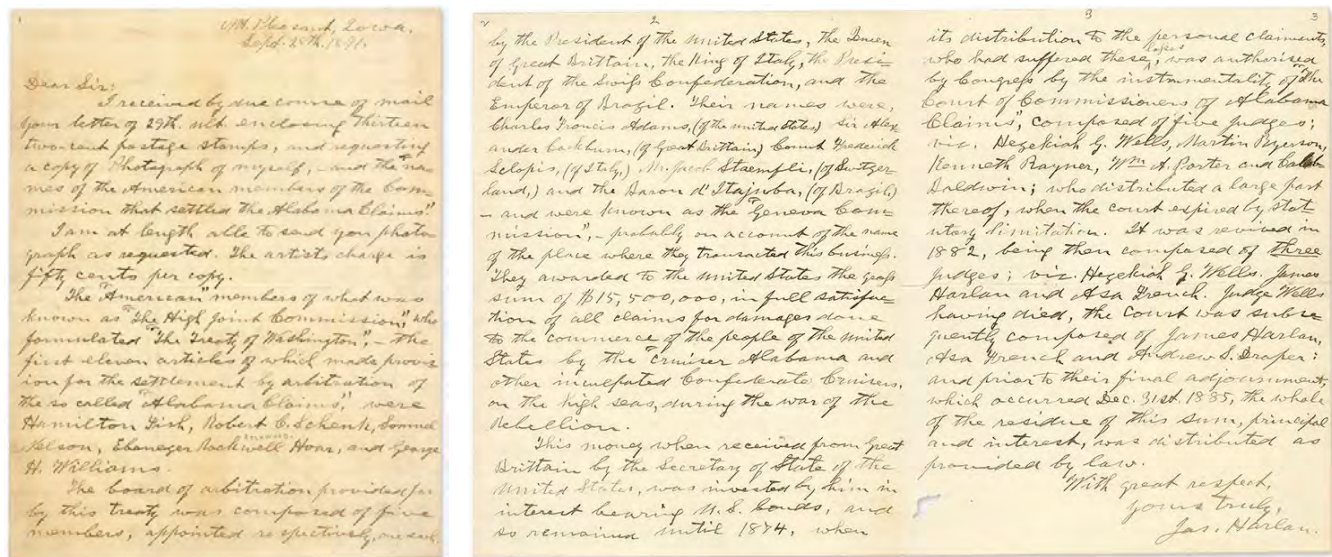 1
Mt. Pleasant, Iowa.
Sept. 28th. 1891.
Dear Sir:
I received by due course of mail
your letter of 29th. ult. enclosing thirteen
two-cent postage stamps, and requesting
a copy of Photograph of myself, - and the "na-
mes of the American members of the Com-
mission that settled the Alabama Claims."
I am at length able to send you photo-
graph as requested. The artists charge is
fifty cents per copy.
The "American" members of what was
known as "The High Joint Commission," who
formulated "The Treaty of Washington", - the
first eleven articles of which made provis-
ion for the settlement by arbitration of
the so called "Alabama Claims," were
Hamilton Fish, Robert C. Schenk, Samuel
Nelson, Ebenezer Rockwell Hoar, and George
H. Williams.
The board of arbitration provided for
by this treaty was composed of five
members, appointed respectively, one each
2
2
by the President of the United States, the Queen
of Great Brittain, the King of Italy, the Presi-
dent of the Swiss Confederation, and the
Emperor of Brazil. Their names were,
Charles Francis Adams, (of the United States) Sir Alex-
ander Cockburn, (of Great Brittain) Count Frederick
Sclopis, (of Italy,) Mr. Jacob Staempfli, (of Switzer-
land,) and the Baron d'Itajuba, (of Brazil)
- and were known as the "Geneva Com-
mission", - probably on account of the name
of the place where they transacted this business.
They awarded to the United States the gross
sum of $15,500,000, in full satisfac-
tion of all claims for damages done
to the commerce of the people of the United
States by the Cruiser Alabama and
other inculpated Confederate Cruisers,
on the high seas, during the war of the
Rebellion.
This money when received from Great
Brittain by the Secretary of State of the
United States, was invested by him in
interest bearing U.S. bonds, and
so remained until 1874, when
3
3
its distribution to the personal claimants,
who had suffered these losses, was authorised
by Congress by the instrumentality of "The
Court of Commissioners of Alabama
Claims", composed of five judges;
viz. Hezekiah G. Wells, Martin Ryerson,
Kenneth Rayner, Wm. A. Porter and Caleb
Baldwin; who distributed a large part
thereof, when the court expired by stat-
utary limitation. It was revived in
1882, being then composed of three
judges; viz. Hezekiah G. Wells. James
Harlan and Asa French. Judge Wells
having died, the Court was subse-
quently composed of James Harlan,
Asa French and Andrew S. Draper:
and prior to their final adjournment,
which occurred Dec. 31st. 1885, the whole
of the residue of this sum, principal
and interest, was distributed as
provided by law.
With great respect,
yours truly,
Jas. Harlan.